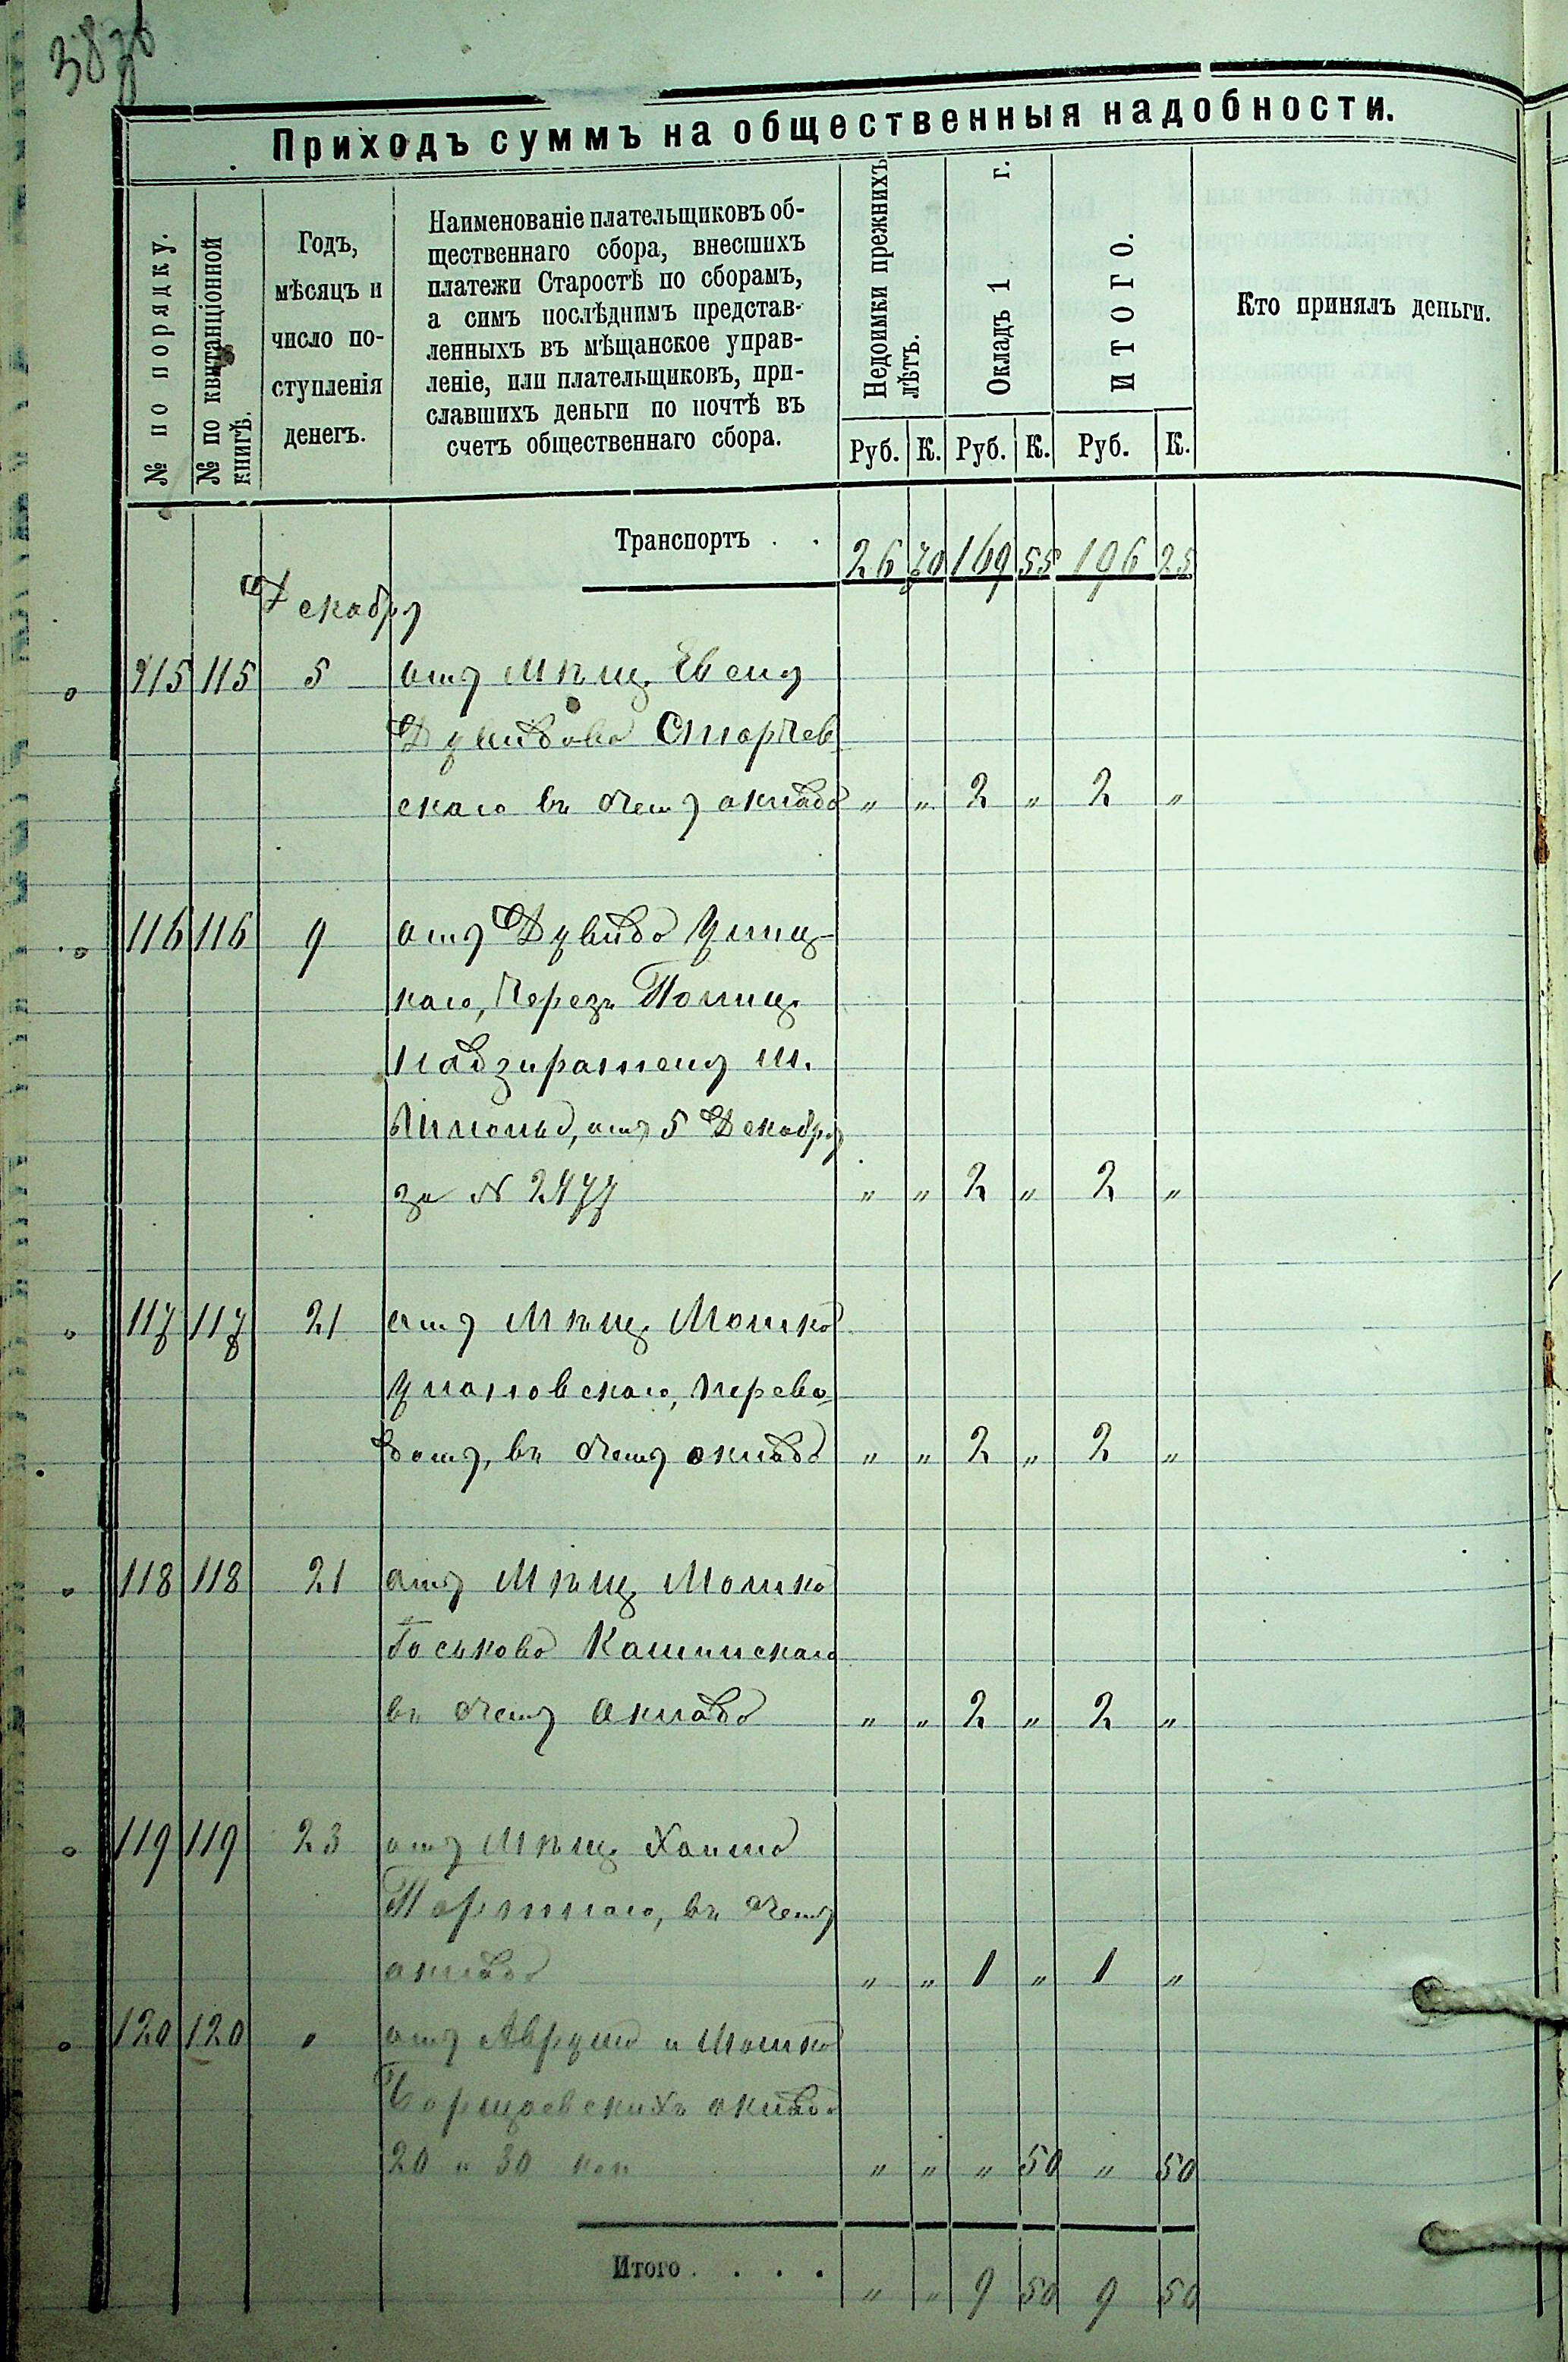 Приходъ суммъ на общественныя надобности.
№ по порядку.
№ по квитанціонной
книгѣ.
Годъ,
мѣсяцъ и
число по-
ступленія
денегъ.
Наименованіе плательщиковъ об-
щественнаго сбора, внесшихъ
платежи Старостѣ по сборамъ,
а симъ послѣднимъ представ-
ленныхъ въ мѣщанское управ-
леніе, или плательщиковъ, при-
славшихъ деньги по почтѣ въ
счетъ общественнаго сбора.
Недоимки прежнихъ
лѣтъ.
Окладъ 1 г.
ИТОГО.
Кто принялъ деньги.
Руб. К. Руб. К. Руб. К.
Транспортъ . . 26 70 169 55 196 25
Декабря
115 115 5 отъ Мѣщ.
Старчев
скаго въ счетъ оклада „ „ 2 „ 2 „
116 116 9 отъ
каго, Черезъ Полиц.
Надзирателя м.
отъ 5 Декабря
за № 2477 „ „ 2 „ 2 „
117 117 21 отъ Мѣщ. Мошко
Улановскаго, перево
домъ, въ счетъ оклада „ „ 2 „ 2 „
118 118 21 отъ Мѣщ. Мошко
Каминскаго
въ счетъ оклада „ „ 2 „ 2 „
119 119 23 отъ Мѣщ. Хаима
Портного, въ счетъ
оклада „ „ 1 „ 1 „
120 120 „ отъ Аврума и Мошко
Борщевскихъ оклада
20 и 30 коп „ „ „ 50 „ 50
Итого . . . . „ „ 9 50 9 50